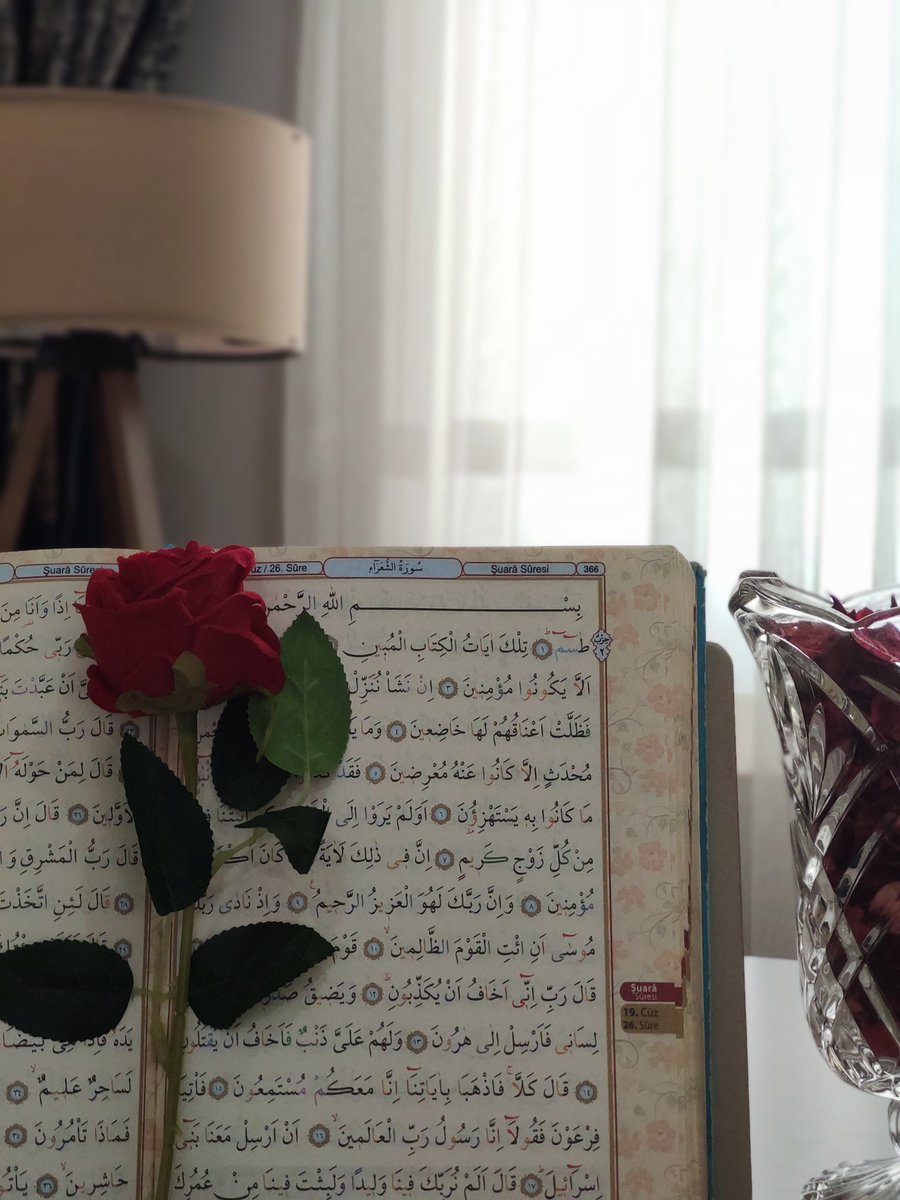 Şuarâ Sûresi
/ 26. Sûre
سُورَةُ الشُّعَرَاءِ
Şuarâ Sûresi
366
بِسْمِ اللهِ الرَّحْمٰنِ
طٰسٓمٓ ۝١ تِلْكَ اٰيَاتُ الْكِتَابِ الْمُبٖينِ
اَلَّا يَكُونُوا مُؤْمِنٖينَ ۝٣ اِنْ نَشَأْ نُنَزِّلْ
فَظَلَّتْ اَعْنَاقُهُمْ لَهَا خَاضِعٖينَ ۝٤ وَمَا
مُحْدَثٍ اِلَّا كَانُوا عَنْهُ مُعْرِضٖينَ ۝٥ فَقَدْ
مَا كَانُوا بِهٖ يَسْتَهْزِؤُنَ ۝٦ اَوَلَمْ يَرَوْا اِلَى
مِنْ كُلِّ زَوْجٍ كَرٖيمٍ ۝٧ اِنَّ فٖى ذٰلِكَ لَاٰيَةً كَانَ
مُؤْمِنٖينَ ۝٨ وَاِنَّ رَبَّكَ لَهُوَ الْعَزٖيزُ الرَّحٖيمُ ۝٩ وَاِذْ نَادٰى
مُوسٰٓى اَنِ ائْتِ الْقَوْمَ الظَّالِمٖينَ ۝١٠ قَوْمَ
قَالَ رَبِّ اِنّٖٓى اَخَافُ اَنْ يُكَذِّبُونِ ۝١٢ وَيَضٖيقُ
لِسَانٖى فَاَرْسِلْ اِلٰى هٰرُونَ ۝١٣ وَلَهُمْ عَلَىَّ ذَنْبٌ فَاَخَافُ اَنْ يَقْتُلُونِ
۝١٤ قَالَ كَلَّا فَاذْهَبَا بِاٰيَاتِنَٓا اِنَّا مَعَكُمْ مُسْتَمِعُونَ ۝١٥
فِرْعَوْنَ فَقُولَٓا اِنَّا رَسُولُ رَبِّ الْعَالَمٖينَ ۝١٦ اَنْ اَرْسِلْ مَعَنَا بَنٖٓى
اِسْرَٓائٖيلَ ۝١٧ قَالَ اَلَمْ نُرَبِّكَ فٖينَا وَلٖيدًا وَلَبِثْتَ فٖينَا مِنْ عُمُرِكَ
Şuarâ
Sûresi
19. Cüz
26. Sûre
اِذًا وَاَنَا مِنَ
رَبّٖى حُكْمًا
اَنْ عَبَّدْتَ
قَالَ رَبُّ السَّمٰوَاتِ
قَالَ لِمَنْ حَوْلَهُٓ
الْاَوَّلٖينَ ۝٢٦ قَالَ اِنَّ
قَالَ رَبُّ الْمَشْرِقِ
۝٢٨ قَالَ لَئِنِ اتَّخَذْتَ
لَسَاحِرٌ عَلٖيمٌ ۝٣٤
فَمَاذَا تَأْمُرُونَ ۝٣٥
حَاشِرٖينَ ۝٣٦